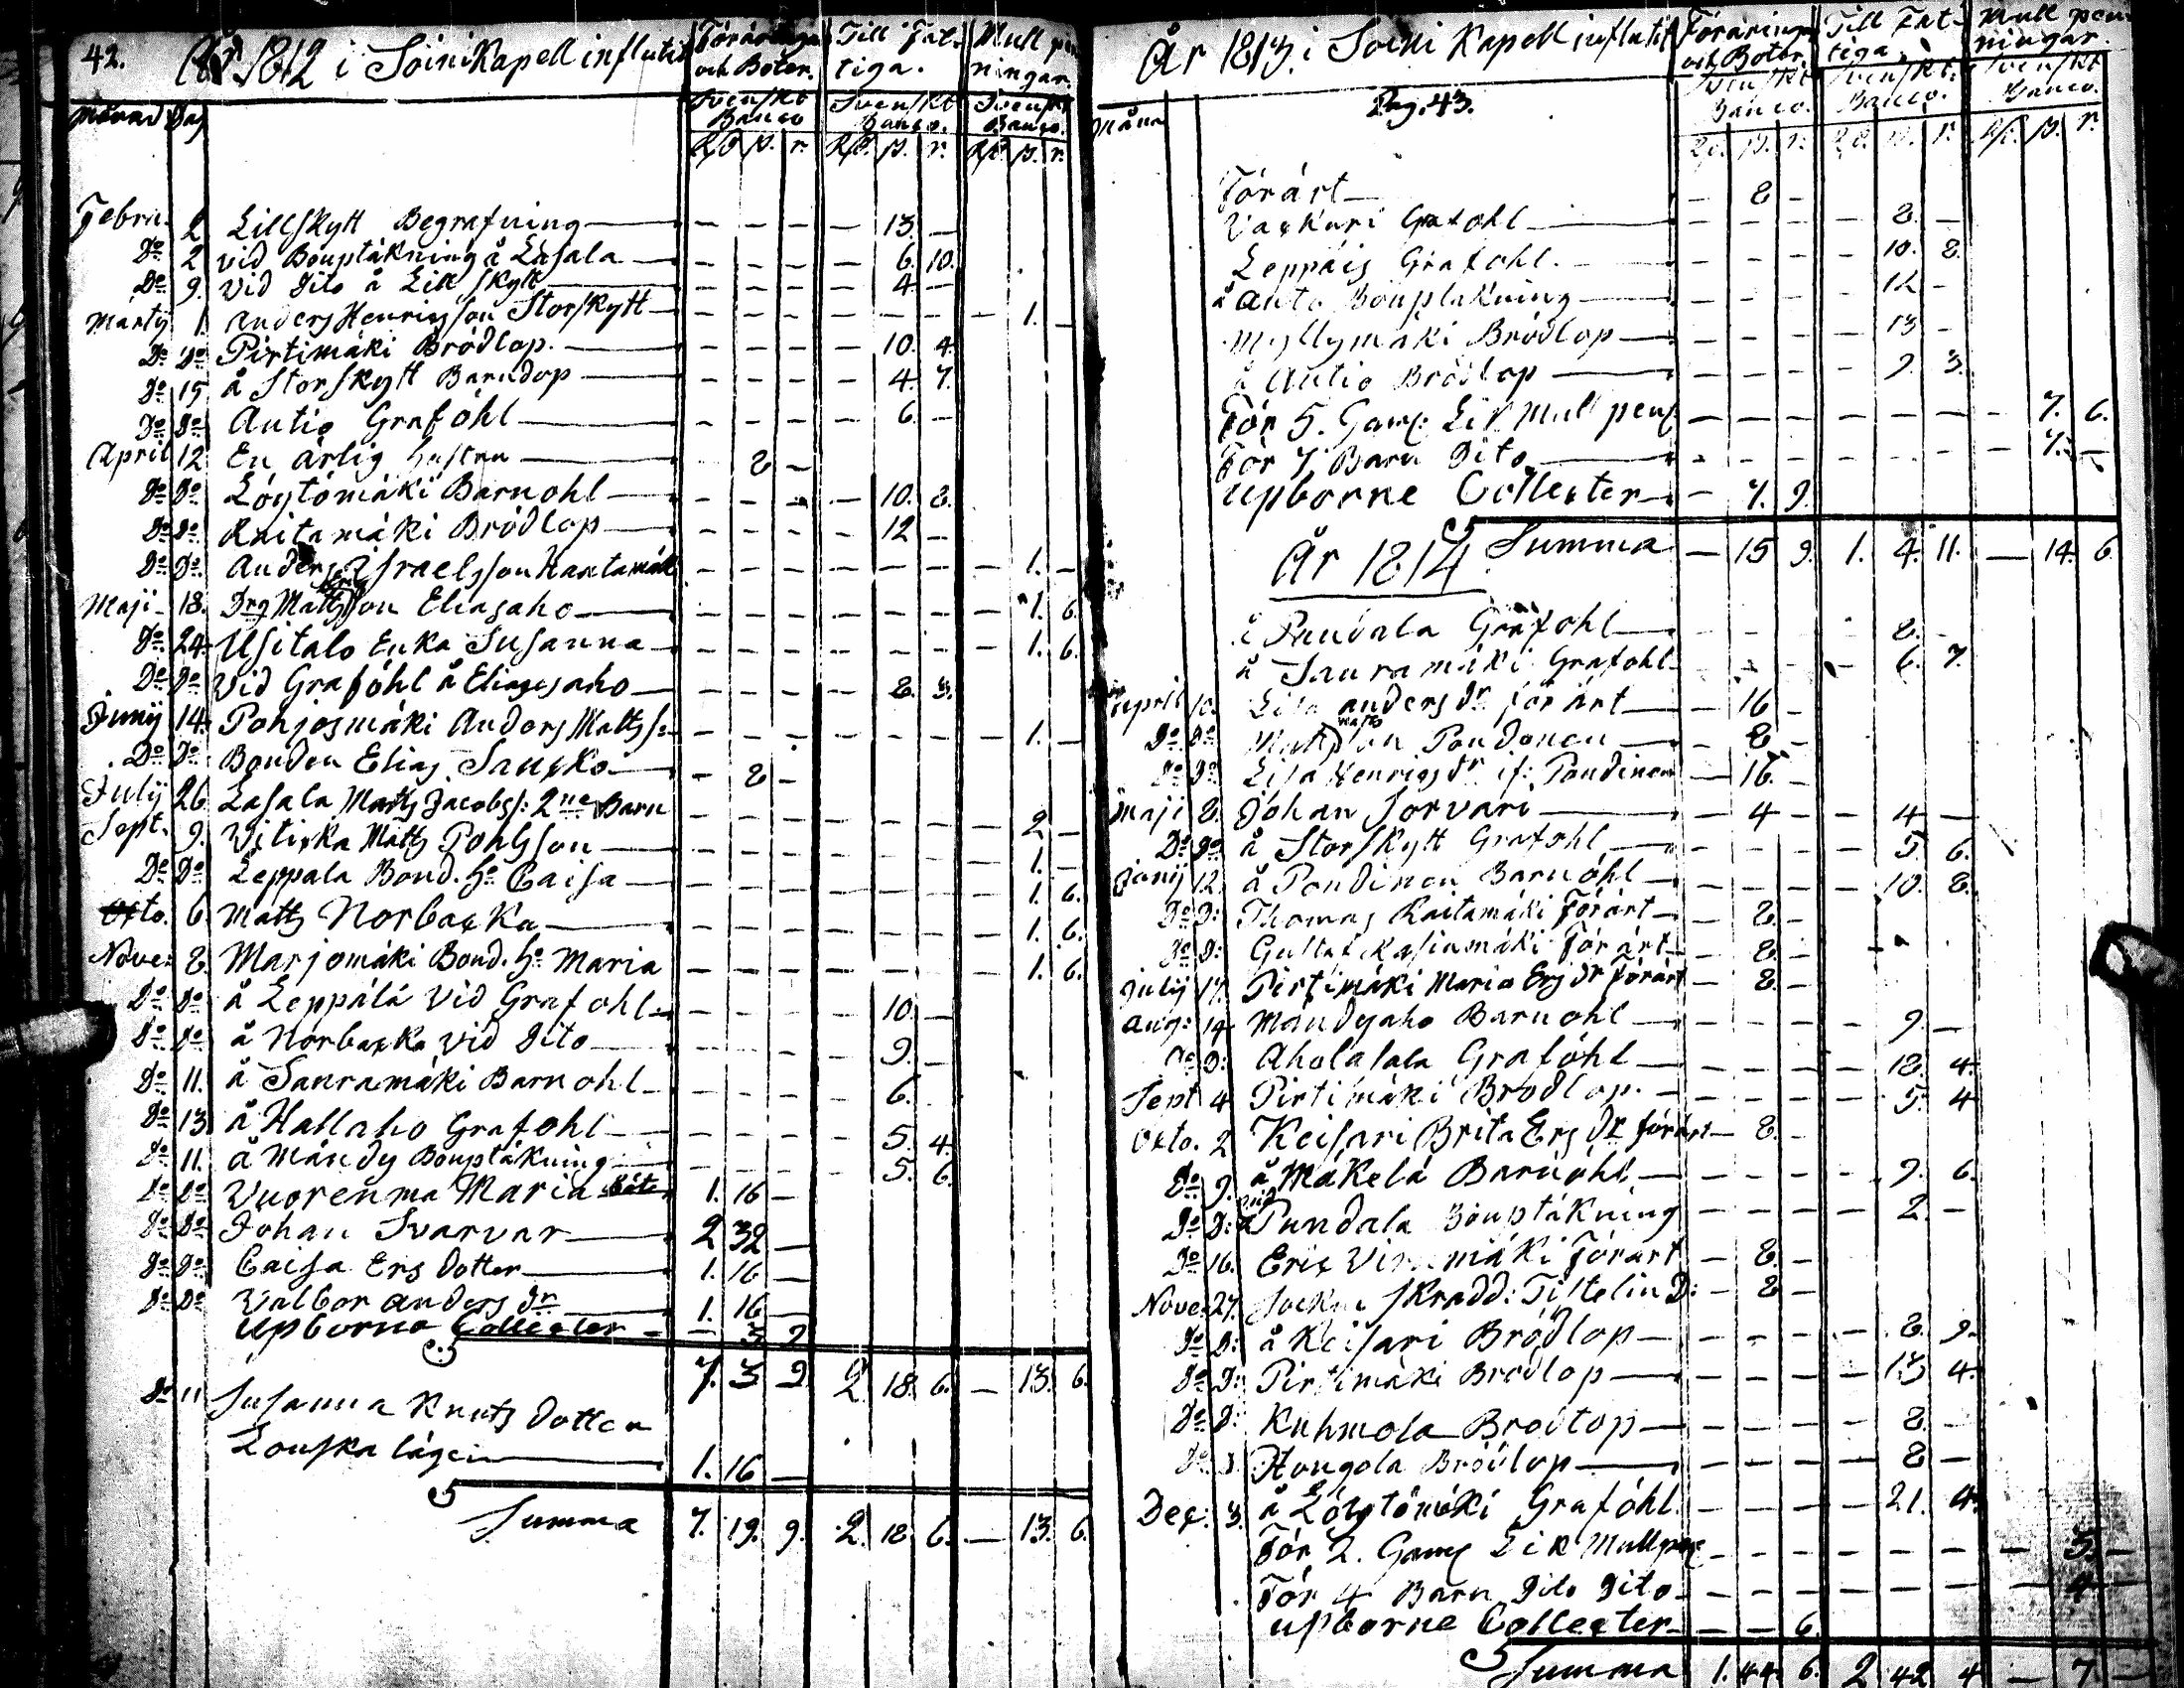 42. År 1812 i Soini Kapell influtit
Föräringar och Böter. Till Fattiga. Mull penningar.
Svenskt Banco Svenskt Banco. Svenskt Banco.
Månad Dag Rd ß. r. Rd ß. r. Rd ß. r.
Febru. 2 Lillskytt Begrafning — — — — 13. —
Do 2 vid Bouptäkning å Lasala — — — — 6. 10.
Do 9. vid Dito å Lill skytt — — — — 4 —
Martij 1. Anders Henricsson Storskytt — — — — — — — 1. —
Do Do Pirtimäki Brödlop. — — — — 10. 4.
Do 15 å Storskytt Barndop — — — — 4. 7.
Do Do Autio Graföhl — — — — 6. —
April 12 En ärlig hustru — 8 —
Do Do Löytömäki Barnohl — — — — 10. 8.
Do Do Raitamäki Brödlop — — — — 12 —
Do Do Anders Israelsson Kantamäk — — — — — — — 1. —
Maji 18. Mattsson Eliasaho — — — — — — — 1. 6.
Do 24. Usitalo Enka Susanna — — — — — — — 1. 6.
Do Do vid Graföhl å Eliasaho — — — — 8. 3.
Junij 14. Pohjosmäki Anders Matts s: — — — — — — — 1. —
Do Do Bonden Elias Saucko — 8 —
Julij 26 Lasala Matts Jacobss: 2ne Barn — — — — — — — 2 —
Sept. 9. Viticka Matts Pohlsson — — — — — — — 1. —
Do Do Leppala Bond. ho Caisa — — — — — — — 1. 6.
Octo. 6. Matts Norbacka — — — — — — — 1. 6.
Nove: 8. Marjomäki Bond. ho Maria — — — — — — — 1. 6.
Do Do å Leppälä vid Grafohl — — — — 10. —
Do Do å Norbacka vid Dito — — — — 9. —
Do 11. å Sauramäki Barnohl — — — — 6.
Do 13 å Hallaho Grafohl — — — — 5. 4.
Do 11. å Mändy Bouptäkning — — — — 5. 6.
Do Do Vuorenma Maria Böter 1. 16 —
Do Do Johan Svarvar 2 32 —
Do Do Caisa Ers dotter 1. 16 —
Do Do Valbor Anders dr 1. 16 —
upborne Collecter — 3 9
7. 3 9 2 18. 6. — 13. 6.
Do 11 Susanna Knuts dotter
Louska lägein 1. 16 —
Summa 7. 19. 9. 2. 18 6. — 13. 6.
År 1813. i Soini Kapell influtit
Föräringar och Böter. Till Fattiga. Mull penningar.
Svenskt Banco. Svenskt Banco. Svenskt Banco.
Måna Pag. 43. Rd. ß. r. Rd. ß. r. Rd. ß. r.
Förärt — — 8 —
Vackuri Grafohl — — — — 8. —
Leppäis Grafohl. — — — — 10. 8.
å Autio Bouptäkning — — — — 12 —
Myllymäki Brödlop — — — — 13 —
å Autio Brödlop — — — — 9. 3.
För 5. Gam: Lik Mull pen — — — — — — — 7. 6.
För 7. Barn Dito — — — — — — — 7. —
upborne Collecter — 7. 9.
Summa — 15 9. 1. 4. 11. — 14. 6.
År 1814
å Pundala Grafohl — — — — 8. —
å Sauramäki Grafohl — — — — 6. 7.
April 10. Lisa anders dr förärt — 16 —
Do Do Pondonen — 8 —
Do Do Lisa Henrics dr if: Pondinen — 16. —
Maji 8. Johan Sorvari — 4 — — 4 —
Do Do å Storskytt Grafohl — — — — 5. 6.
Junij 12. å Pondinen Barnöhl — — — — 10. 8.
Do D: Thomas Raitamäki Förärt — 8. —
Do D: Gustaf Kasiamäki Förärt — 8. —
Julij 17. Pirtimäki Maria Ers dr Förärt — 8. —
Aug: 14 Mändyaho Barnohl — — — — 9. —
Do D: Aholasala Graföhl — — — — 18. 4.
Sept 4 Pirtimäki Brödlop. — — — — 5. 4
Octo. 2 Keisari Brita Ers dr förärt — 8. —
Do 9. å Mäkelä Barnöhl — — — — 9. 6.
Do D: vid Pundala Bouptäkning — — — — 2. —
Do 16. Eric Virnmäki Förärt — 8. —
Nove: 27. Sockne Skradd: Tistelin D: — 8 —
Do D: å Keisari Brödlop — — — — 8. 9.
Do D: Pirtimäki Brödlop — — — — 13 4.
Do D: Kuhmola Brödlop — — — — 8. —
Do D: Hangola Brödlop — — — — 8 —
Dec: 3. å Löytömäki Graföhl. — — — — 21. 4.
För 2. Gam Lik Mullpen — — — — — — — 3. —
För 4 Barn Dito Dito — — — — — — — 4 —
upborne Collecter — — 6.
Summa 1. 44. 6. 2 42 4 — 7 —